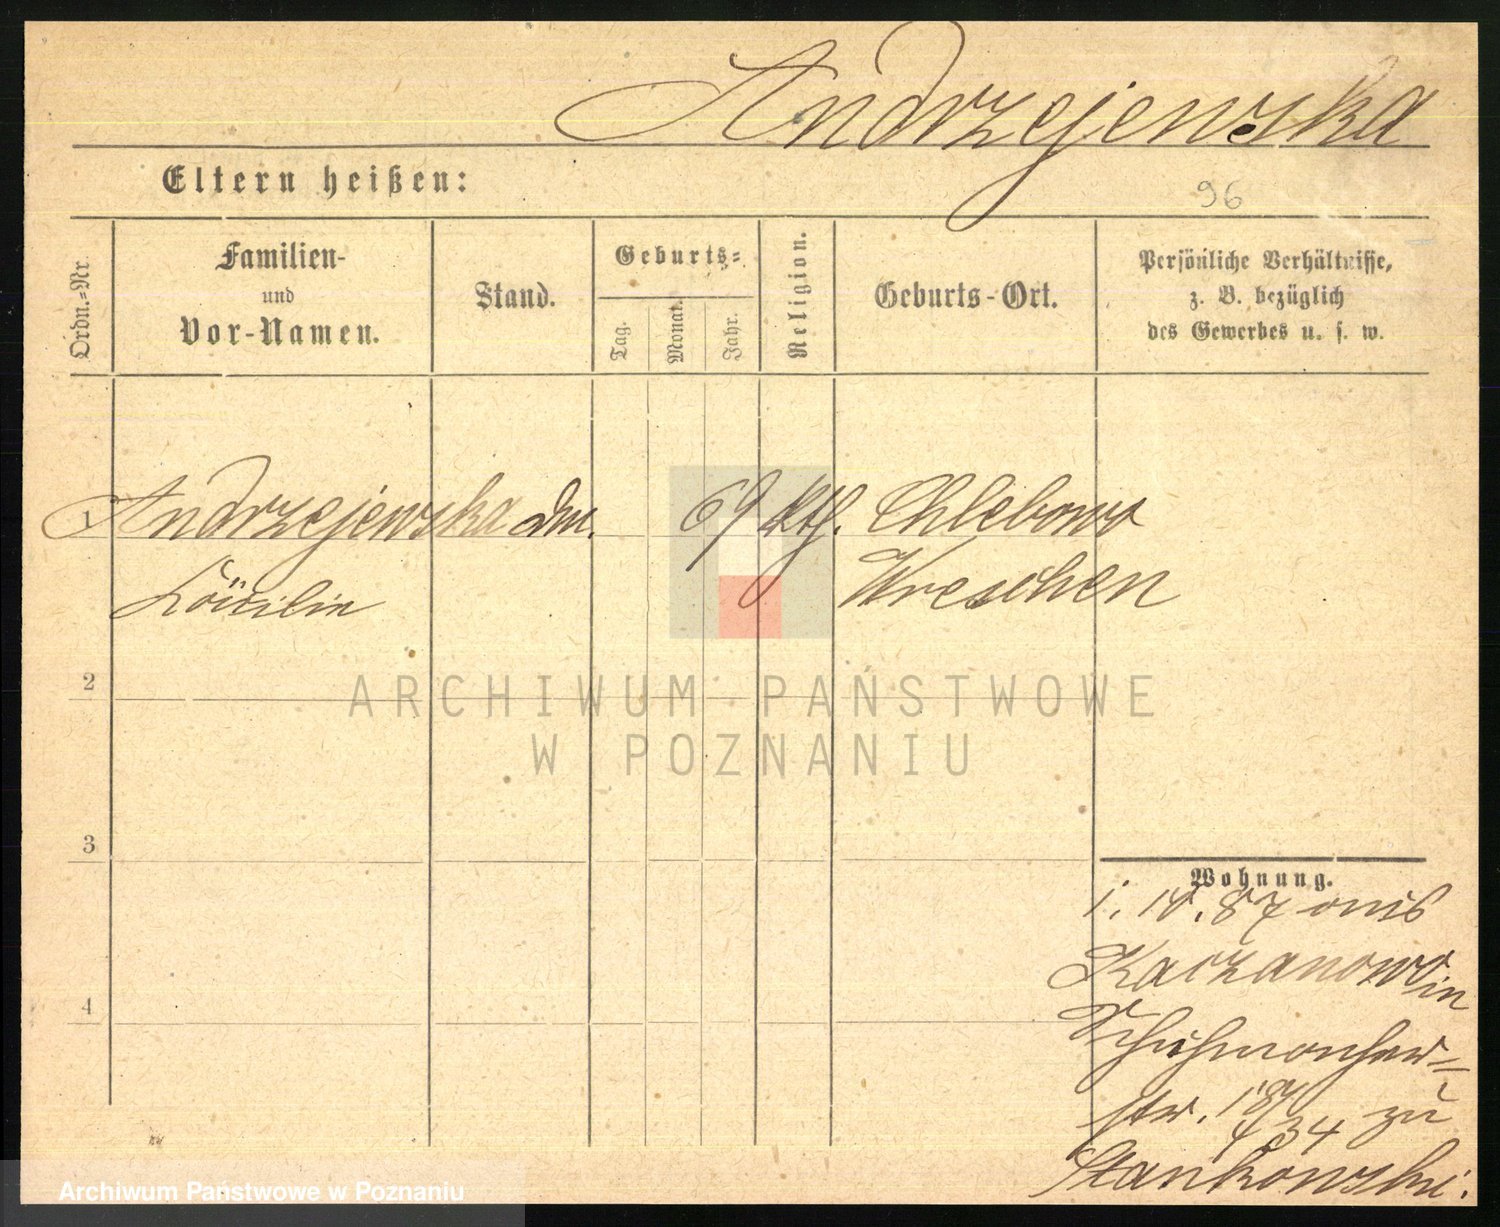 Andrzejewska
Eltern heißen:
96
Ordn.=Nr.
Familien-
und
Vor-Namen.
Stand.
Geburts=
Tag.
Monat.
Jahr.
Religion.
Geburts-Ort.
Persönliche Verhältnisse,
z. B. bezüglich
des Gewerbes u. s. w.
1 Andrzejewska 69 kth. Chlebowo
Wreschen
2
3
4
ARCHIWUM PAŃSTWOWE
W POZNANIU
Wohnung.
87 aus
Kaczanowo in
Schuhmacher=
str. 18/34 zu
Stankowski.
Archiwum Państwowe w Poznaniu